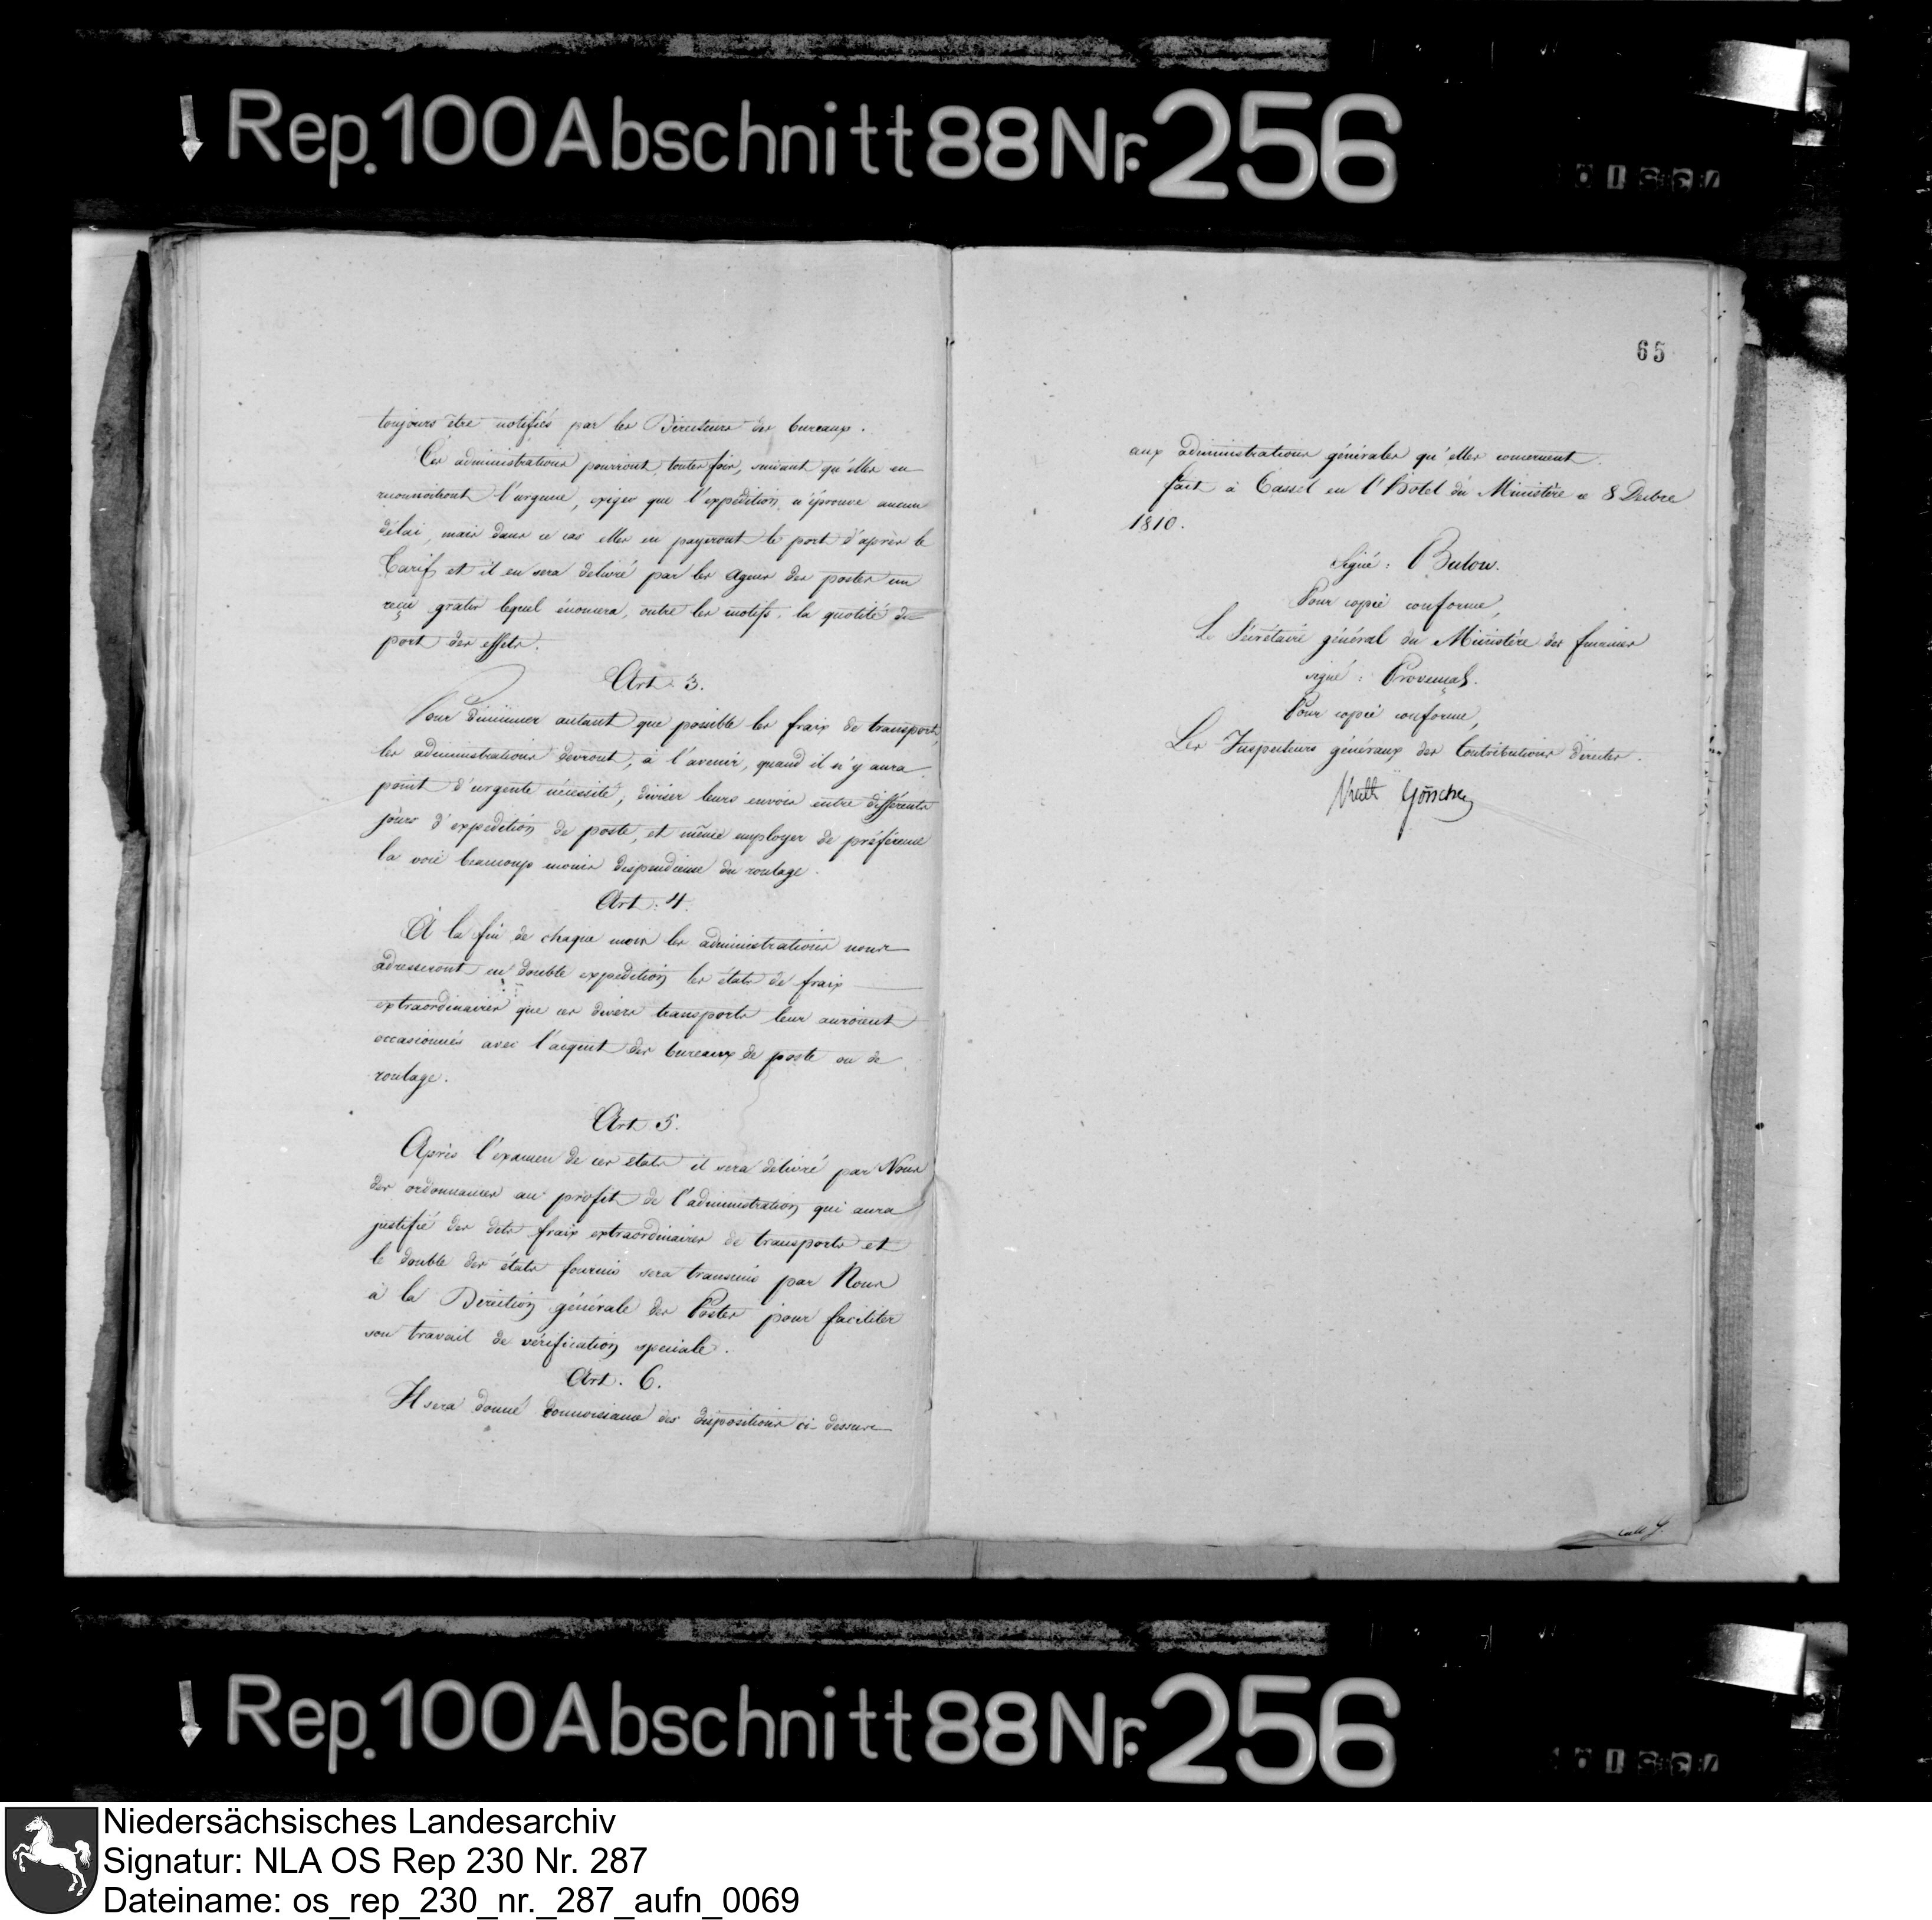 Rep. 100 Abschnitt 88 Nr. 256
toujours être notifiés par les Directeurs des bureaux.
Ces administrations pourront toutes fois, suivant qu'elles en
reconnoitront l'urgence, exiger que l'expedition n'éprouve aucun
délai, mais dans ce cas elles en payeront le port d'après le
Tarif et il en sera delivré par les Agens des postes un
reçu gratis lequel énoncera, outre les motifs, la quotité du
port des effets.
Art. 3.
Pour diminuer autant que possible les fraix de transport,
les administrations devront, à l'avenir, quand il n'y aura
point d'urgente nécessité, diviser leurs envois entre différents
jours d'expedition de poste, et même employer de préférence
la voie beaucoup moins dispendieuse du roulage.
Art. 4.
A la fin de chaque mois les administrations nous
adresseront en double expedition les états de fraix
extraordinaires que ces divers transports leur auroient
occasionnés avec l'acquit des bureaux de poste ou de
roulage.
Art. 5.
Après l'examen de ces états il sera délivré par Nous
des ordonnances au profit de l'administration qui aura
justifié des dits fraix extraordinaires de transports et
le double des états fournis sera transmis par Nous
à la Direction générale des Postes pour faciliter
son travail de vérification speciale.
Art. 6.
Il sera donné connoissance des dispositions ci dessus
65
aux administrations générales qu'elles concernent.
fait à Cassel en l'Hotel du Ministère ce 8 Decbre
1810.
Signé: Bulow.
Pour copie conforme,
Le Sécrétaire général du Ministère des finances
signé: Provençal.
Pour copie conforme,
Les Inspecteurs généraux des Contributions directes.
Rep. 100 Abschnitt 88 Nr. 256
Niedersächsisches Landesarchiv
Signatur: NLA OS Rep 230 Nr. 287
Dateiname: os_rep_230_nr._287_aufn_0069